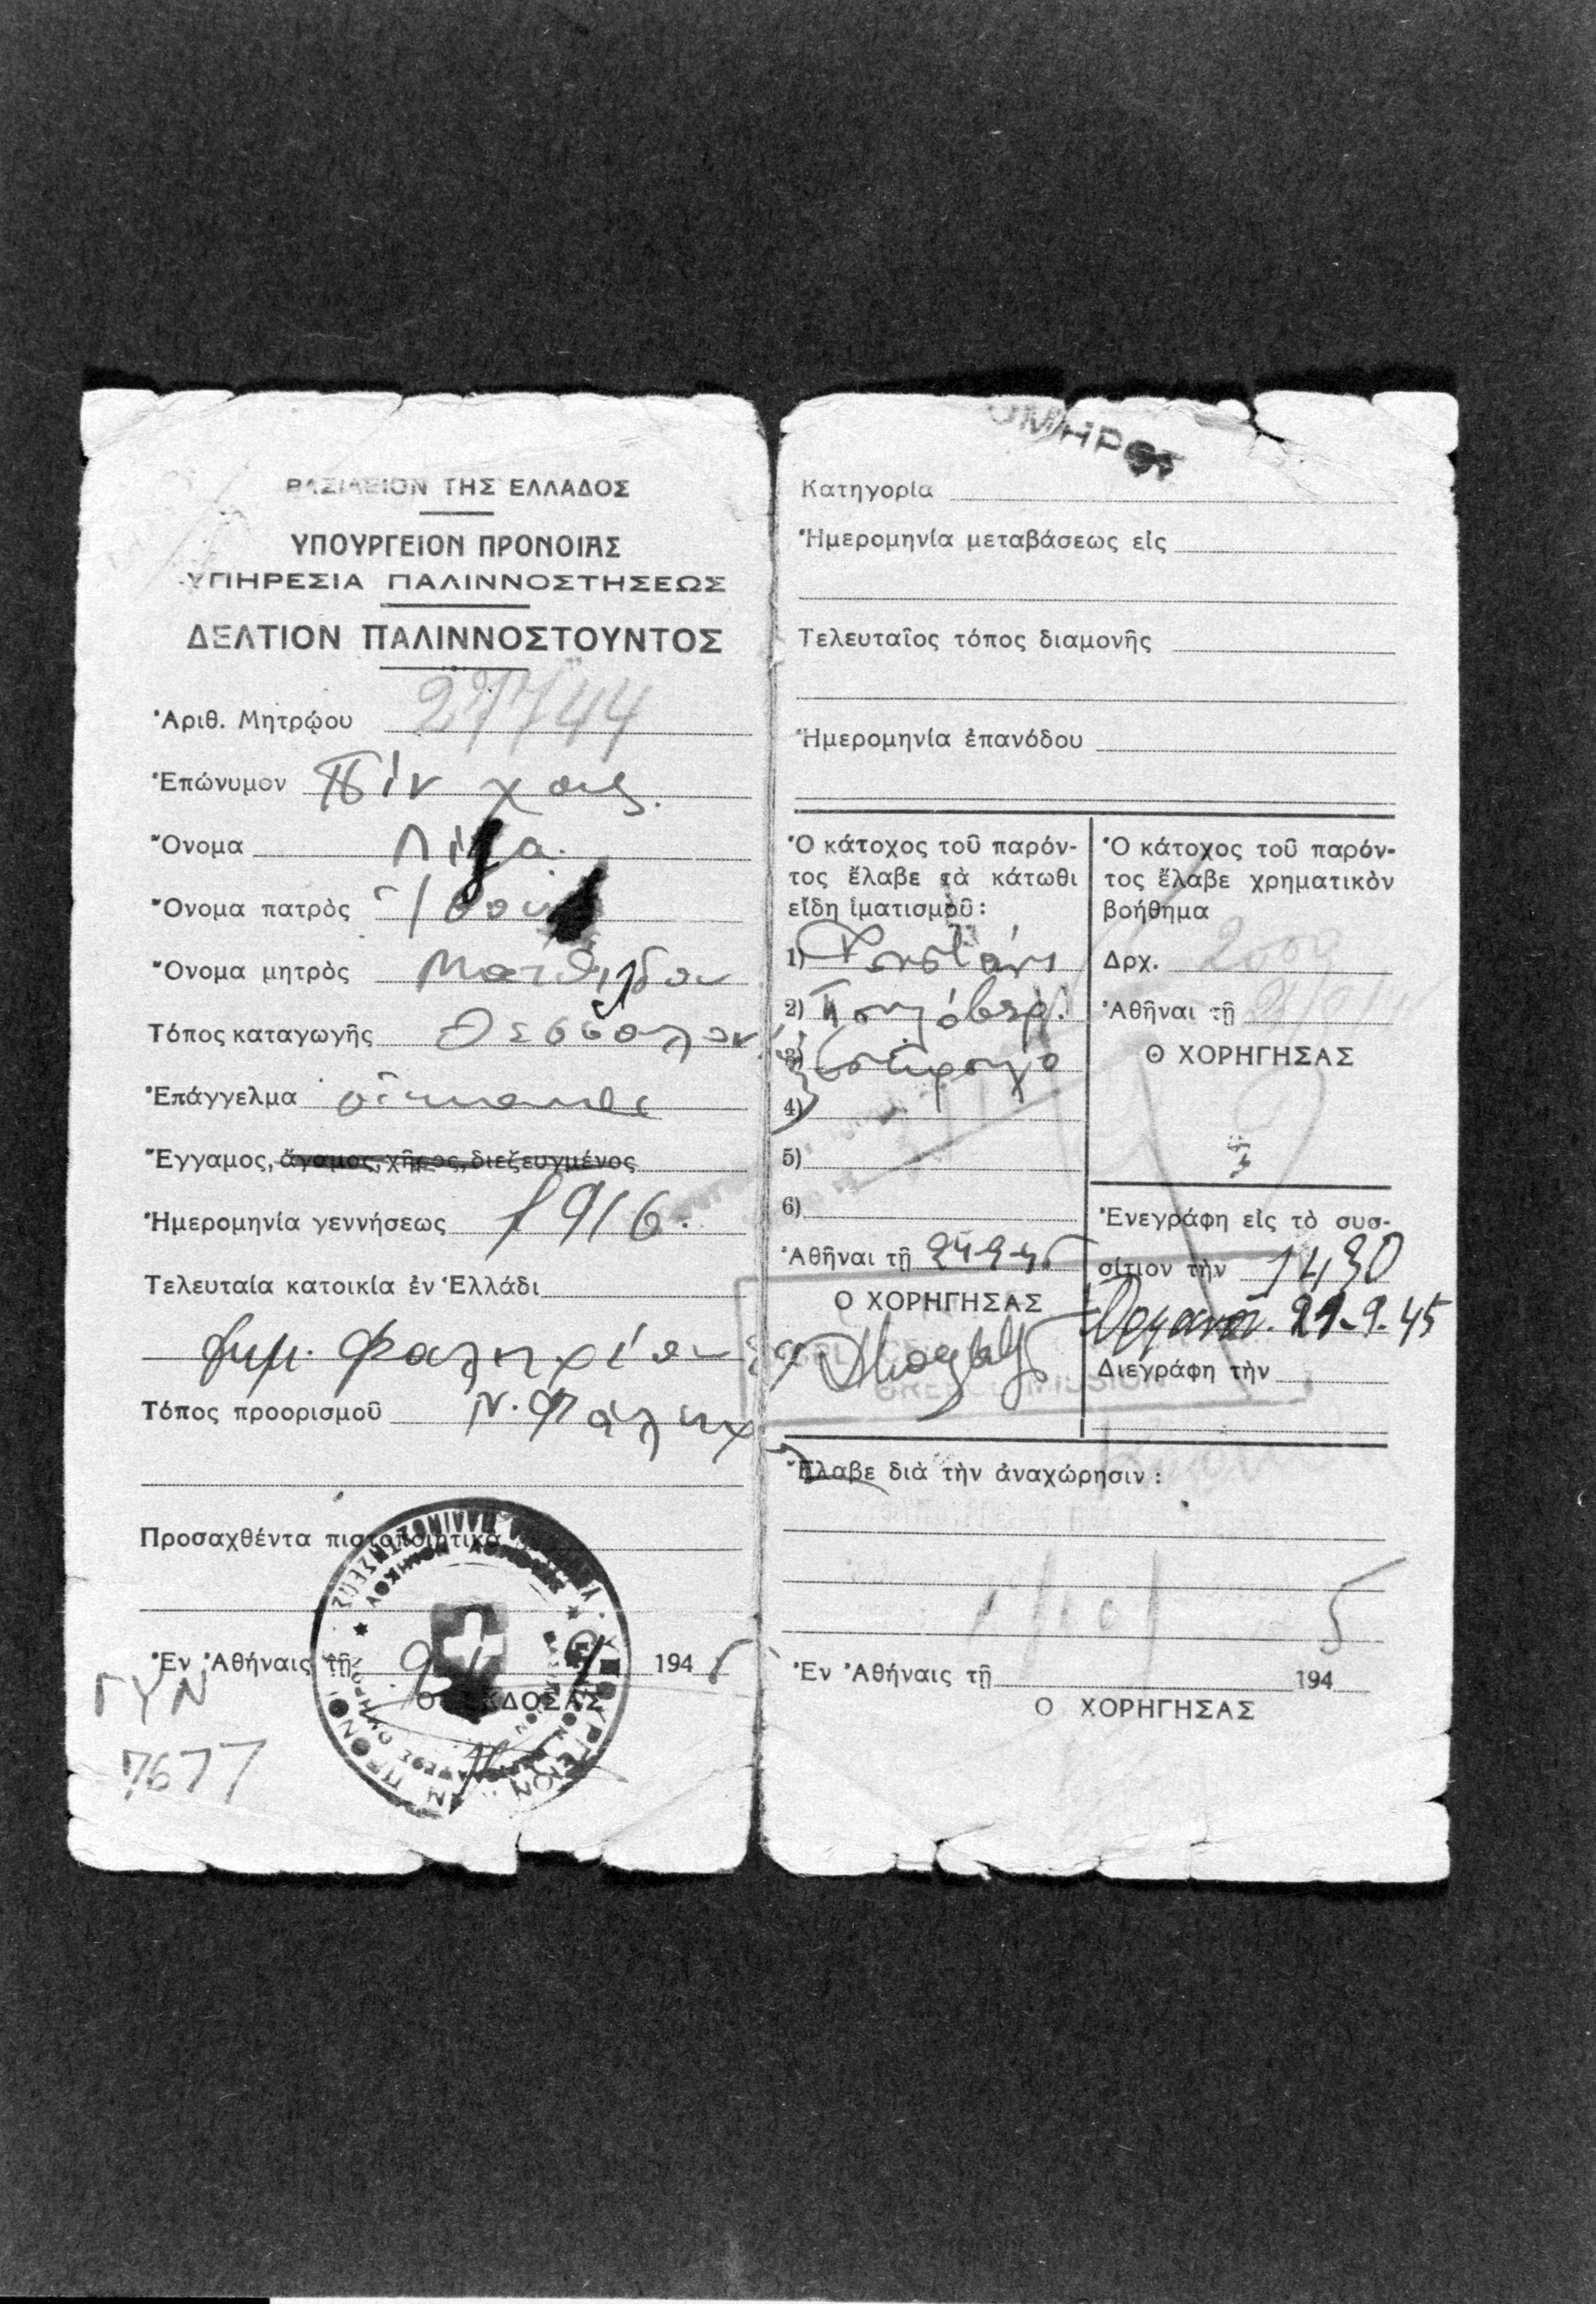 ΒΑΣΙΛΕΙΟΝ ΤΗΣ ΕΛΛΑΔΟΣ
ΥΠΟΥΡΓΕΙΟΝ ΠΡΟΝΟΙΑΣ
ΥΠΗΡΕΣΙΑ ΠΑΛΙΝΝΟΣΤΗΣΕΩΣ
ΔΕΛΤΙΟΝ ΠΑΛΙΝΝΟΣΤΟΥΝΤΟΣ
Ἀριθ. Μητρῴου 27744
Ἐπώνυμον Πίνχας.
Ὄνομα Λίζα.
Ὄνομα πατρὸς
Ὄνομα μητρὸς Ματθίλδη
Τόπος καταγωγῆς Θεσσαλον
Ἐπάγγελμα
Ἔγγαμος, ἄγαμος, χῆρος, διεζευγμένος
Ἡμερομηνία γεννήσεως 1916.
Τελευταία κατοικία ἐν Ἑλλάδι
Τόπος προορισμοῦ Ν. Φάληρ
Προσαχθέντα πιστοποιητικά
Ἐν Ἀθήναις τῇ 9 1945
Ο ΕΚΔΟΣΑΣ
ΓΥΝ
7677
ΟΜΗΡΟΙ
Κατηγορία
Ἡμερομηνία μεταβάσεως εἰς
Τελευταῖος τόπος διαμονῆς
Ἡμερομηνία ἐπανόδου
Ὁ κάτοχος τοῦ παρόν-
τος ἔλαβε τὰ κάτωθι
εἴδη ἱματισμοῦ:
1) Φουστάνι
2) Πουλόβερ.
3)
4)
5)
6)
Ἀθῆναι τῇ 24-9-45
Ο ΧΟΡΗΓΗΣΑΣ
GREECE MISSION
Ὁ κάτοχος τοῦ παρόν-
τος ἔλαβε χρηματικὸν
βοήθημα
Δρχ. 2000
Ἀθῆναι τῇ
Ο ΧΟΡΗΓΗΣΑΣ
Ἐνεγράφη εἰς τὸ συσ-
σίτιον τὴν 1430
21-9-45
Διεγράφη τὴν
Ἔλαβε διὰ τὴν ἀναχώρησιν:
Ἐν Ἀθήναις τῇ 194
Ο ΧΟΡΗΓΗΣΑΣ